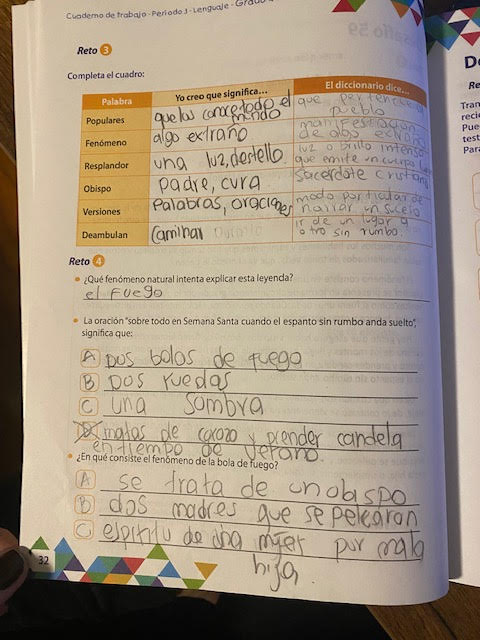 Cuaderno de trabajo - Periodo 3 - Lenguaje - Grado
Reto 3
Completa el cuadro:
Palabra
Yo creo que significa...
El diccionario dice...
Populares
que los conoce todo el mundo
que pertenece a pueblo
Fenómeno
algo extraño
manifestación de algo extraño
Resplandor
una luz, destello
luz o brillo intenso que emite un cuerpo
Obispo
padre, cura
sacerdote cristiano
Versiones
Palabras, oraciones
modo particular de narrar un suceso
Deambulan
Caminar
ir de un lugar a otro sin rumbo.
Reto 4
• ¿Qué fenómeno natural intenta explicar esta leyenda?
el Fuego
• La oración "sobre todo en Semana Santa cuando el espanto sin rumbo anda suelto",
significa que:
A Dos bolas de fuego
B Dos ruedas
C una sombra
D matas de corozo y prender candela
en tiempo de verano.
• ¿En qué consiste el fenómeno de la bola de fuego?
A se trata de un obispo
B dos madres que se pelearon
C espiritu de una mujer por mala
hija.
32